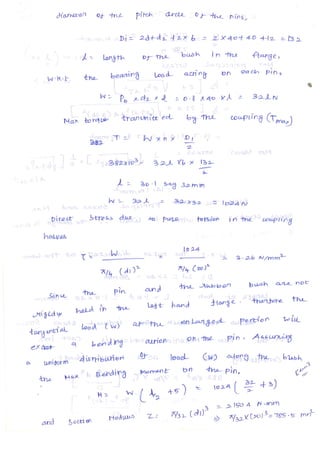 diameter of the pitch circle of the pins,
D₁ = 2d+d₂ + 2×6 = 2×40+40+12 = 132
l = length of the bush in the flange,
W.K.T the bearing load acting on each pin,
W = P_b × d₂ × l = 0.8 × 40 × l = 32l N
Max torsion transmitted by the coupling (T_max)
T = W × n × D₁/2
382×10³ = 32l × 6 × 132/2
l = 30.1 say 32mm
W = 32l = 32×32 = 1024N
Direct stress due to pure torsion in the coupling
halves
τ = W / π/4 (d₁)² = 1024 / π/4 (20)² = 3.26 N/mm²
Since the pin and the rubber bush are not
rigidly held in the left hand flange, therefore the
tangential load (W) at the enlarged portion will
exert a bending action on the pin. Assuming
a uniform distribution of load (W) along the bush
the Max Bending Moment on the pin,
M = W (l/2 + 5) = 1024 (32/2 + 5)
= 21504 N-mm
and Section Modulus Z = π/32 (d₁)³ ⇒ π/32 × (20)³ = 785.5 mm³